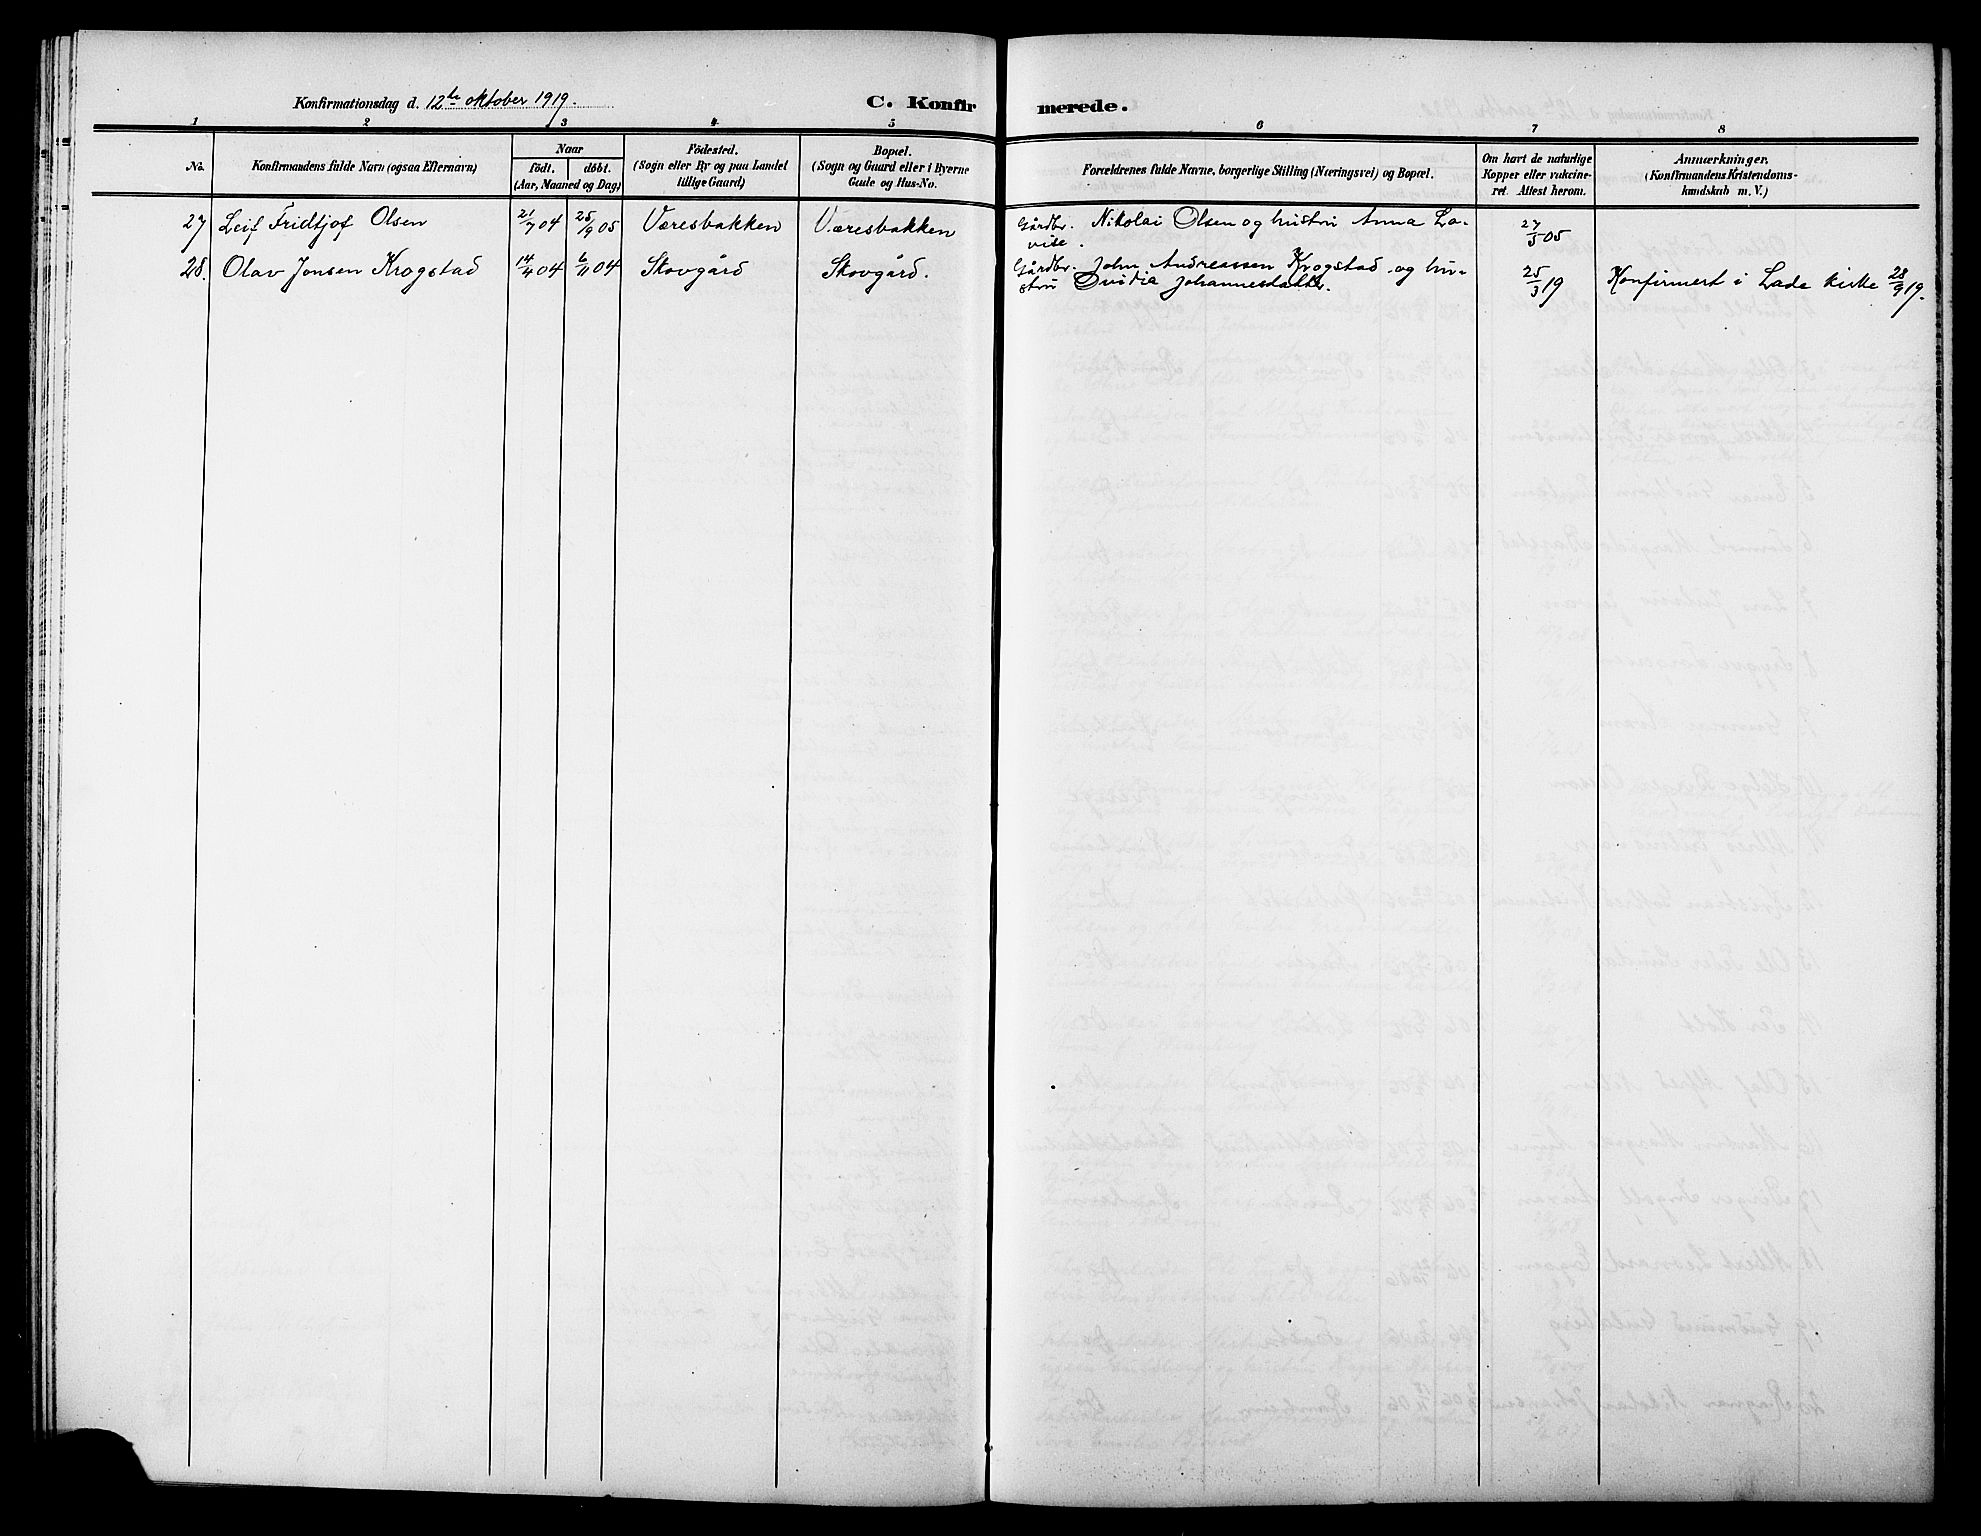 Konfirmationsdag d. 12te oktober 1919.
C. Konfirmerede.
1 2 3 4 5 6 7 8
No.
Konfirmandens fulde Navn (ogsaa Efternavn)
Naar
födt. döbt.
(Aar, Maaned og Dag)
Födested.
(Sogn eller By og paa Landet
tillige Gaard)
Bopæl.
(Sogn og Gaard eller i Byerne
Gade og Hus-No.
Forældrenes fulde Navne, borgerlige Stilling (Næringsvei) og Bopæl.
Om havt de naturlige
Kopper eller vakcine-
ret. Attest herom.
Anmærkninger.
(Konfirmandens Kristendoms-
kundskab m. V.)
27 Leif Fridtjof Olsen 21/7 04 25/9 05 Væresbakken Væresbakken Gårdbr. Nikolai Olsen og hustru Anna Lo-
vise. 27/5 05
28. Olav Jonsen Krogstad 14/4 04 6/11 04 Skovgård Skovgård. Gårdbr. John Andreassen Krogstad og hu-
stru Ovidia Johannesdatter. 25/3 19 Konfirmert i Lade kirke 28/9 19.